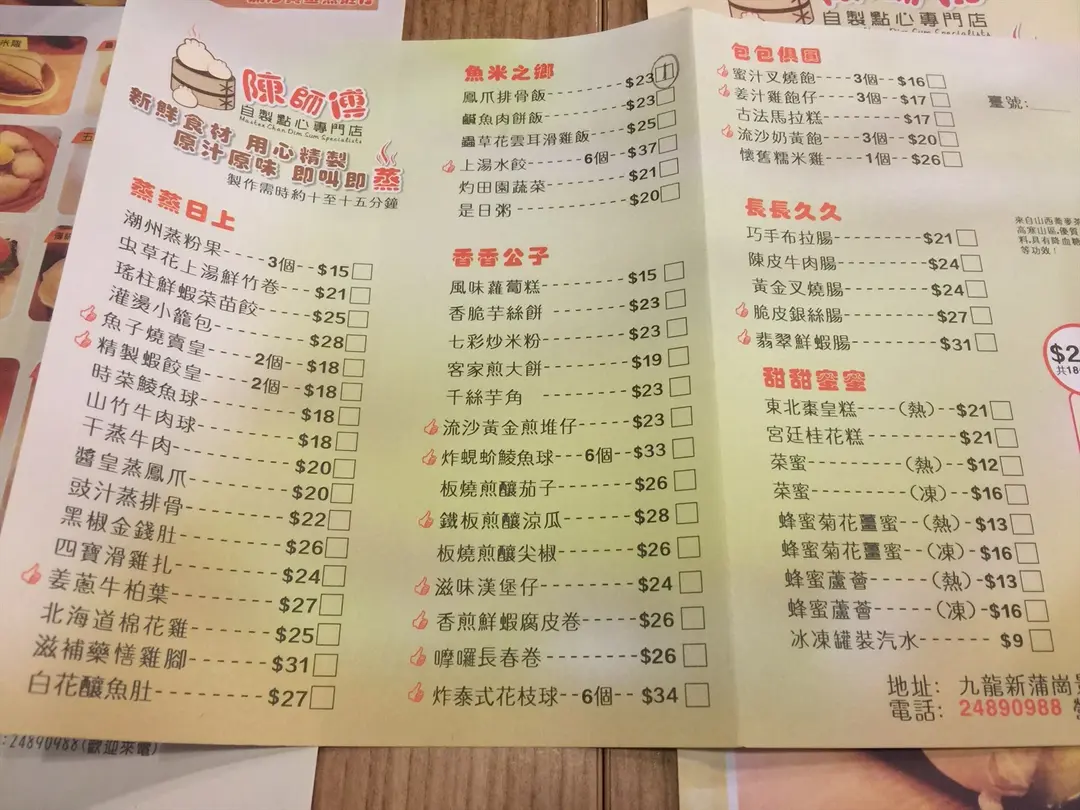 陳師傅
自製點心專門店
Master Chan Dim Sum Specialists
新鮮食材 用心精製
原汁原味 即叫即蒸
製作需時約十至十五分鐘
蒸蒸日上
潮州蒸粉果----3個--$15
虫草花上湯鮮竹卷---$21
瑤柱鮮蝦菜苗餃----$25
灌燙小籠包--------$28
魚子燒賣皇----2個--$18
精製蝦餃皇----2個--$18
時菜鯪魚球--------$18
山竹牛肉球--------$18
干蒸牛肉----------$20
醬皇蒸鳳爪--------$20
豉汁蒸排骨--------$22
黑椒金錢肚--------$26
四寶滑雞扎--------$24
姜蔥牛柏葉--------$27
北海道棉花雞------$25
滋補藥膳雞腳------$31
白花釀魚肚--------$27
魚米之鄉
鳳爪排骨飯--------$23
鹹魚肉餅飯--------$23
蟲草花雲耳滑雞飯---$25
上湯水餃----6個--$37
灼田園蔬菜--------$21
是日粥------------$20
香香公子
風味蘿蔔糕--------$15
香脆芋絲餅--------$23
七彩炒米粉--------$23
客家煎大餅--------$19
千絲芋角 --------$23
流沙黃金煎堆仔----$23
炸蜆蚧鯪魚球--6個--$33
板燒煎釀茄子------$26
鐵板煎釀涼瓜------$28
板燒煎釀尖椒------$26
滋味漢堡仔--------$24
香煎鮮蝦腐皮卷----$26
嚤囉長春卷--------$26
炸泰式花枝球--6個--$34
包包俱圓
蜜汁叉燒飽----3個--$16
姜汁雞飽仔----3個--$17
古法馬拉糕--------$17
流沙奶黃飽----3個--$20
懷舊糯米雞----1個--$26
長長久久
巧手布拉腸--------$21
陳皮牛肉腸--------$24
黃金叉燒腸--------$24
脆皮銀絲腸--------$27
翡翠鮮蝦腸--------$31
甜甜蜜蜜
東北棗皇糕----(熱)--$21
宮廷桂花糕--------$21
菜蜜----------(熱)--$12
菜蜜----------(凍)--$16
蜂蜜菊花薑蜜--(熱)-$13
蜂蜜菊花薑蜜--(凍)-$16
蜂蜜蘆薈------(熱)-$13
蜂蜜蘆薈------(凍)-$16
冰凍罐裝汽水------$9
地址: 九龍新蒲崗
電話: 24890988
臺號:
來自山西蕎麥茶
高寒山區,優質
料,具有降血糖
等功效!
$2
共18
自製點心專門店
24890988(歡迎來電)